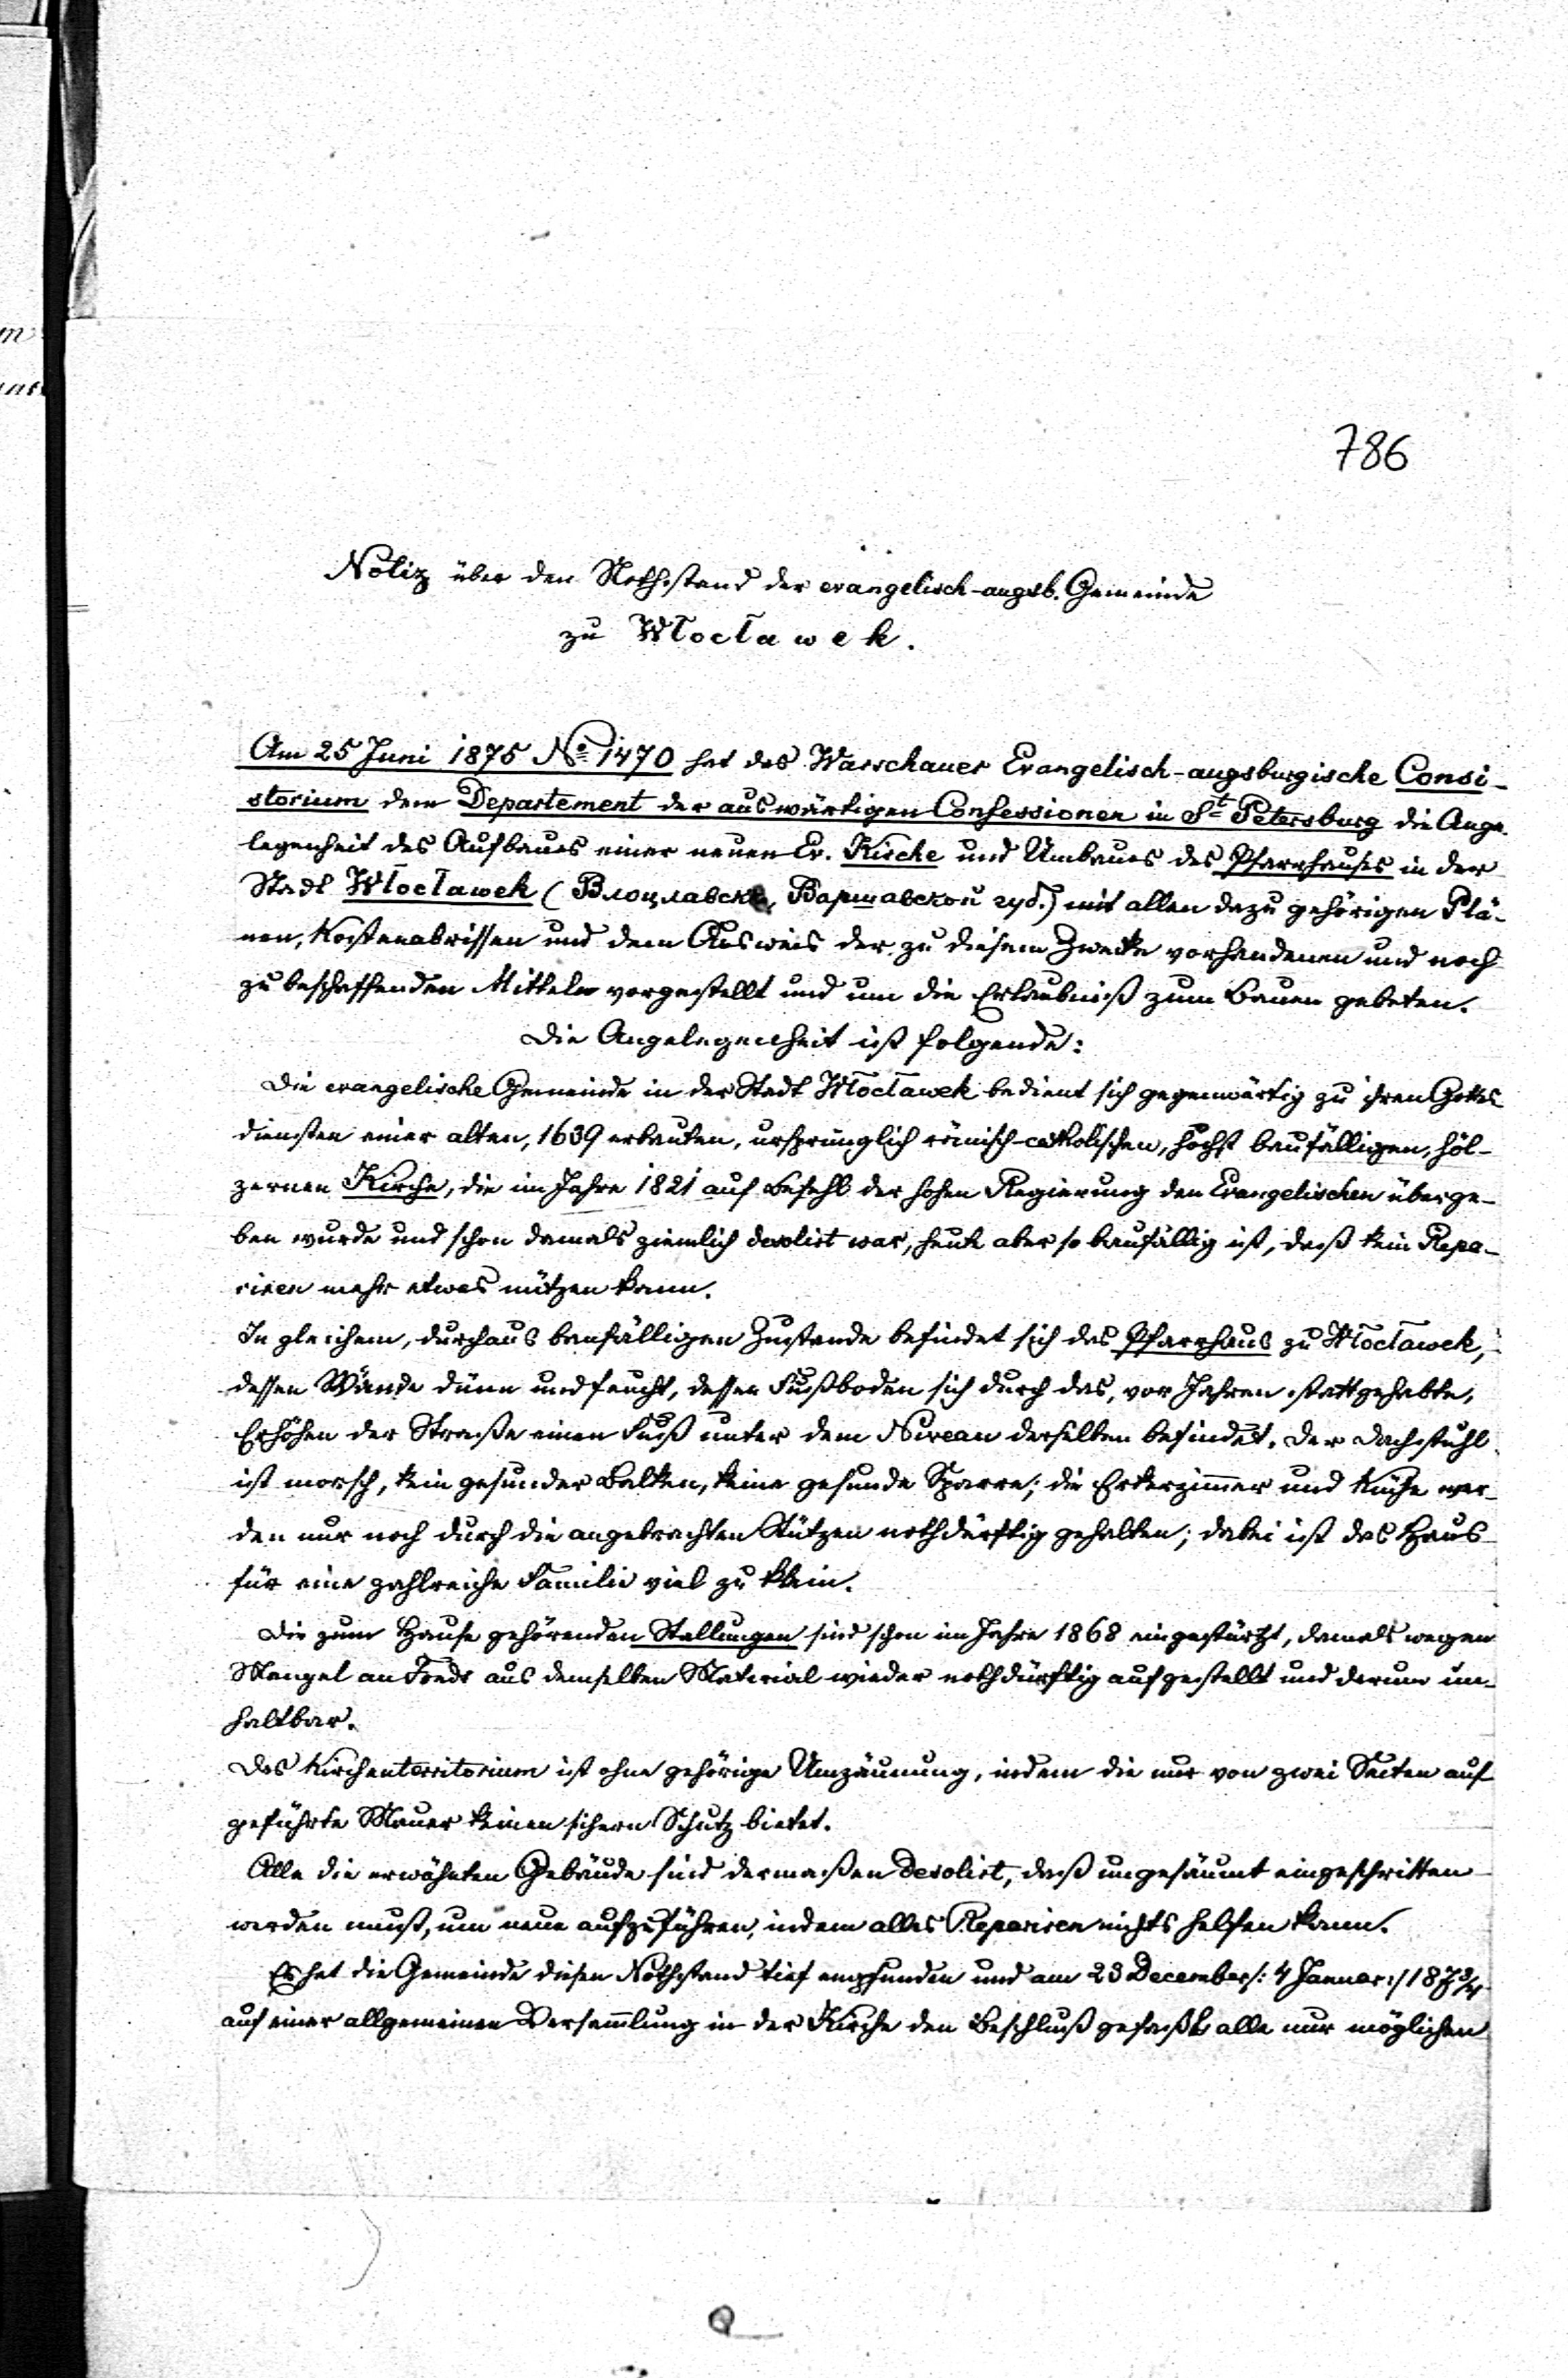 786
Notiz über den Nothstand der evangelisch-augsb. Gemeinde
zu Włocławek.
Am 25 Juni 1875 No 1470 hat das Warschauer Evangelisch-augsburgische Consi-
storium dem Departement der auswärtigen Confessionen in St Petersburg die Ange-
legenheit des Aufbaues einer neuen Ev. Kirche und Umbaues des Pfarrhauses in der
Stadt Włocławek (Влоцлавскъ, Варшавской губ.) mit allen dazu gehörigen Plä-
nen, Kostenabrissen und dem Ausweis der zu diesem Zwecke vorhandenen und noch
zu beschaffenden Mitteln vorgestellt und um die Erlaubniß zum Bauen gebeten.
Die Angelegenheit ist folgende:
Die evangelische Gemeinde in der Stadt Włocławek bedient sich gegenwärtig zu ihren Gottes-
diensten einer alten, 1639 erbauten, ursprünglich römisch-catholischen, höchst baufälligen, höl-
zernen Kirche, die im Jahre 1821 auf Befehl der hohen Regierung den Evangelischen überge-
ben wurde und schon damals ziemlich desolirt war, heute aber so baufällig ist, daß kein Repa-
riren mehr etwas nützen kann.
In gleichem, durchaus baufälligen Zustande befindet sich das Pfarrhaus zu Włocławek,
dessen Wände dünn und feucht, dessen Fußboden sich durch das, vor Jahren stattgehabte,
Erhöhen der Straße einen Fuß unter dem Niveau derselben befindet. Der Dachstuhl
ist morsch, kein gesunder Balken, keine gesunde Sparre; die Erkerzimmer und Küche wer-
den nur noch durch die angebrachten Stützen nothdürftig gehalten; dabei ist das Haus
für eine zahlreiche Familie viel zu klein.
Die zum Hause gehörenden Stallungen sind schon im Jahre 1868 eingestürzt, damals wegen
Mangel an Fonds aus demselben Material wieder nothdürftig aufgestellt und darum un-
haltbar.
Das Kirchenterritorium ist ohne gehörige Umzäunung, indem die nur von zwei Seiten auf
geführte Mauer keinen sichern Schutz bietet.
Alle die erwähnten Gebäude sind dermaßen desolirt, daß ungesäumt eingeschritten
werden muß, um neue aufzuführen, indem alles Repariren nichts helfen kann.
Es hat die Gemeinde diesen Nothstand tief empfunden und am 23 December /: 4 Januar :/ 187¾
auf einer allgemeinen Versammlung in der Kirche den Beschluß gefaßt alle nur möglichen